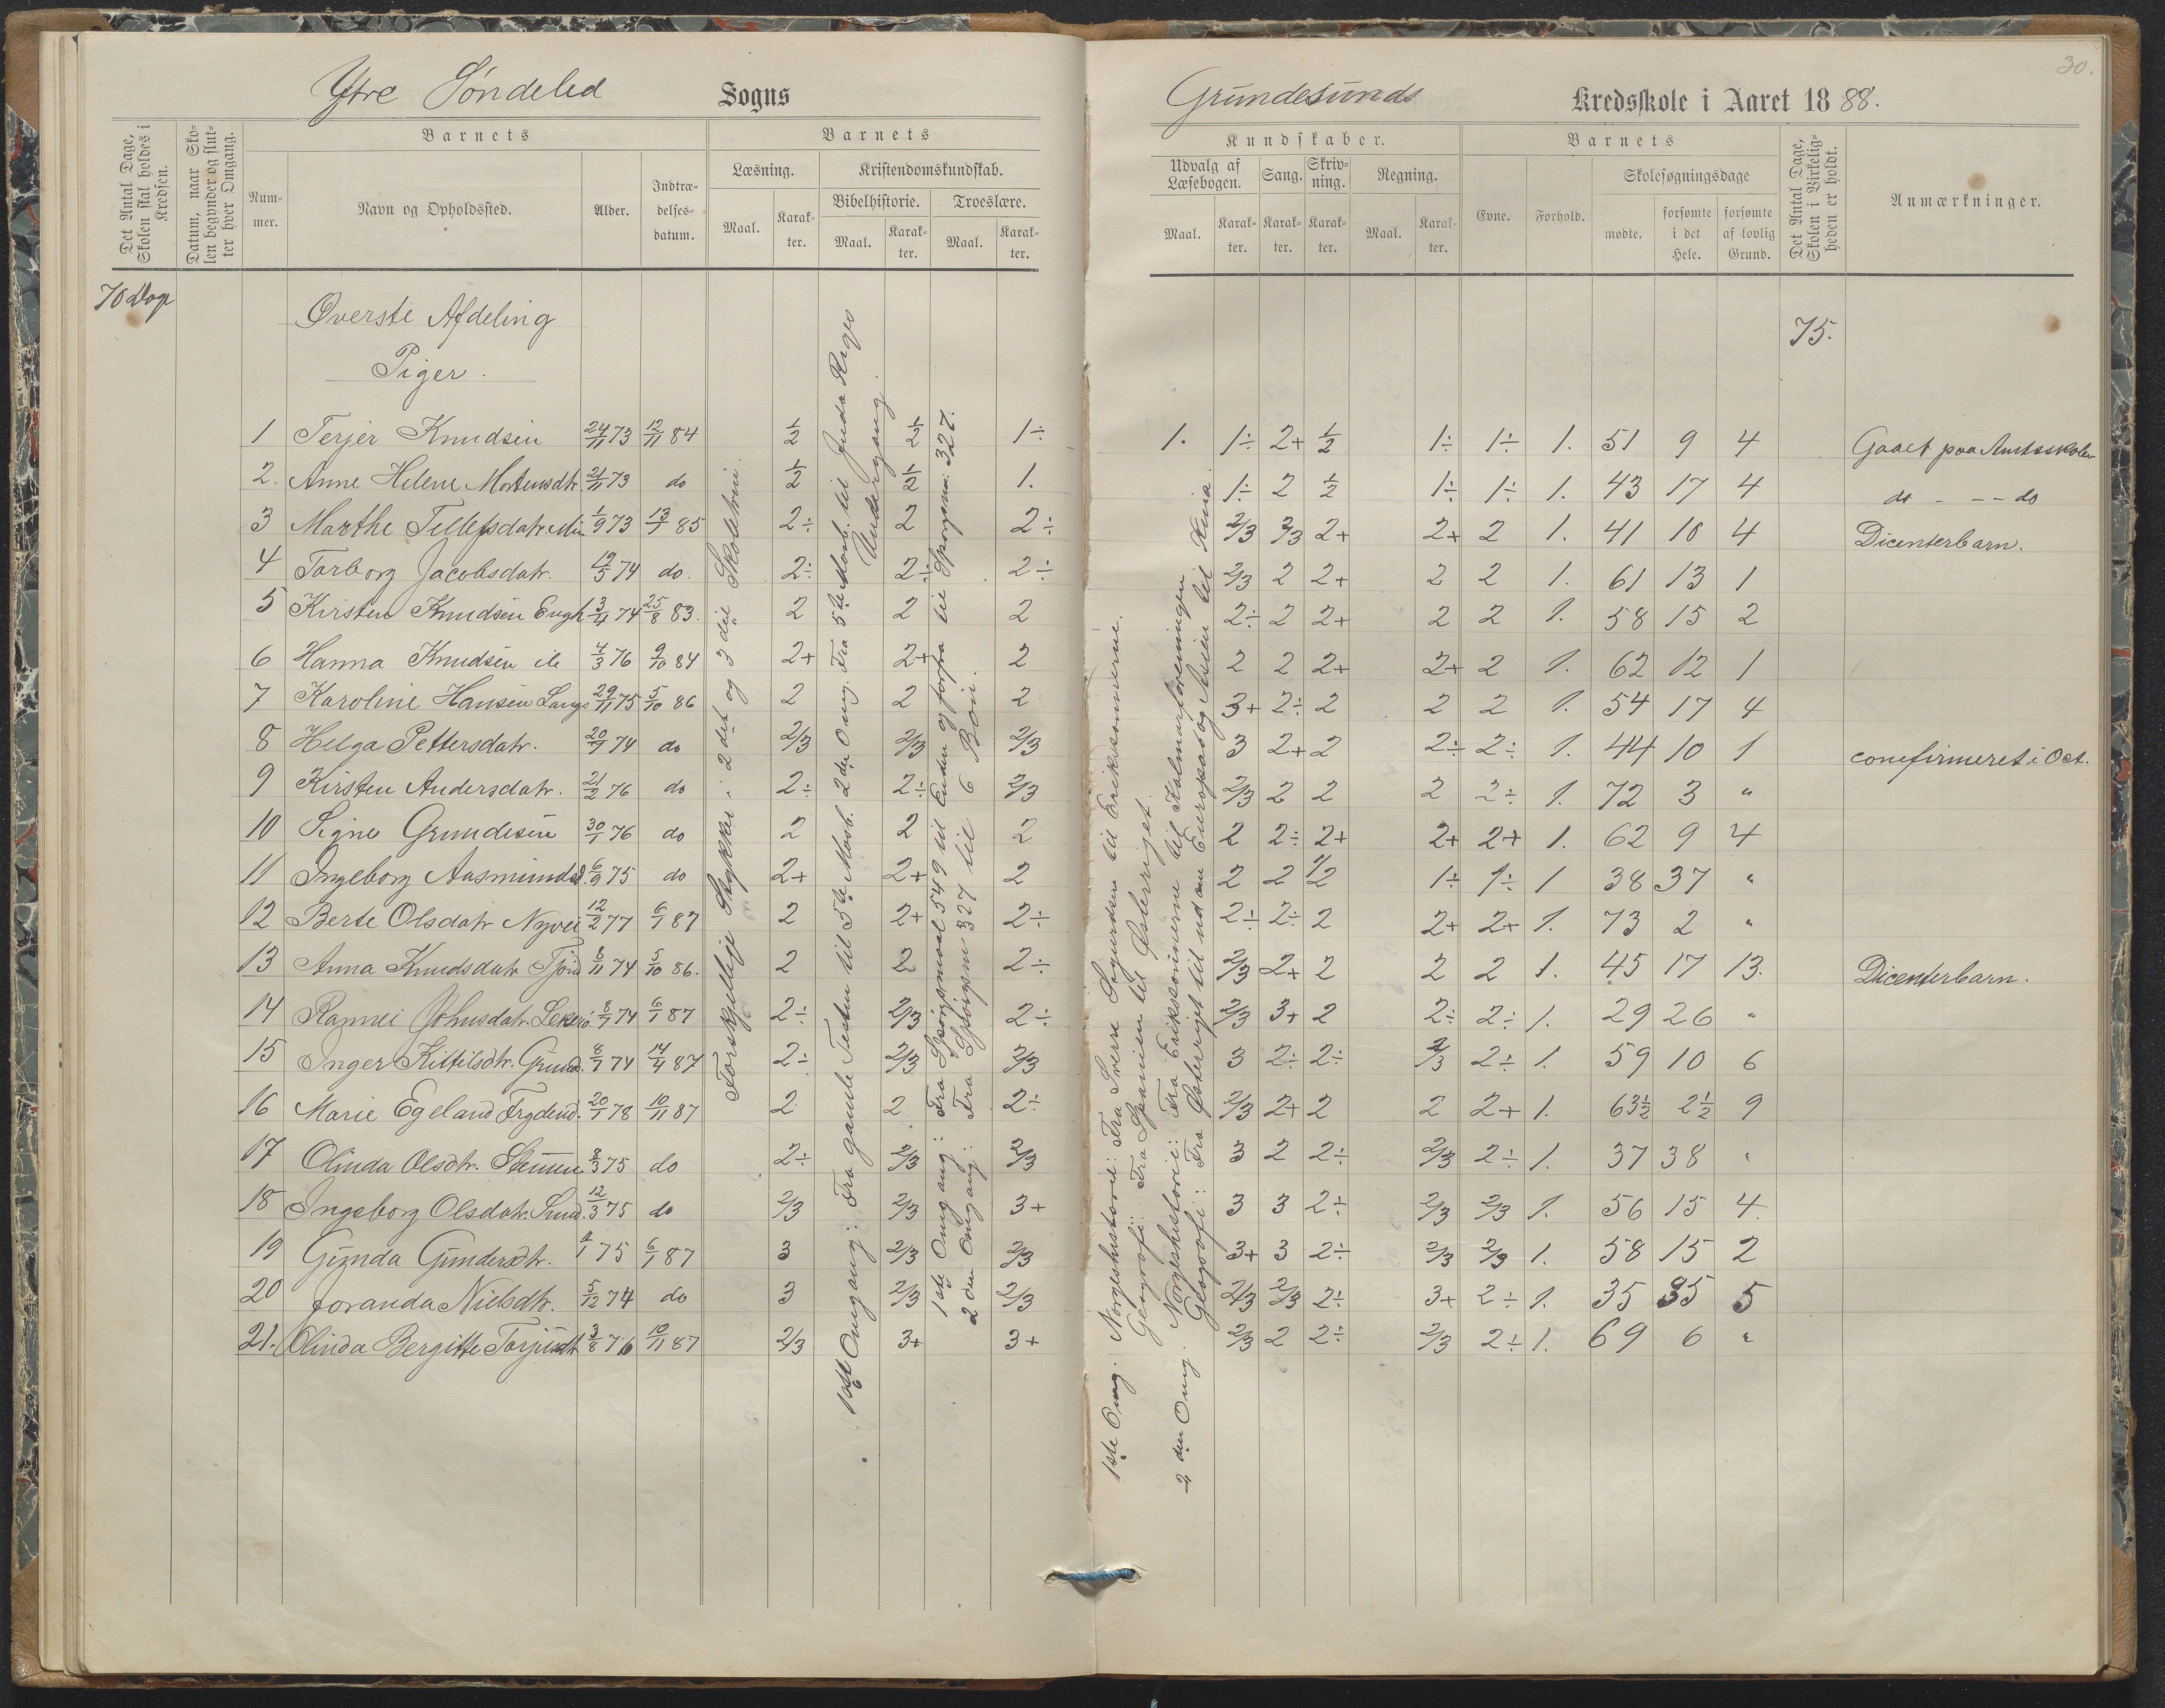 30.
Ytre Søndeled Sogns
Grundesunds Kredsskole i Aaret 1888.
Det Antal Dage, Skolen skal holdes i Kredsen.
Datum, naar Skolen begynder og slutter hver Omgang.
Nummer.
Barnets
Navn og Opholdssted.
Alder.
Indtrædelsesdatum.
Barnets
Læsning.
Maal.
Karakter.
Kristendomskundskab.
Bibelhistorie.
Maal.
Karakter.
Troeslære.
Maal.
Karakter.
Kundskaber.
Udvalg af Læsebogen.
Maal.
Karakter.
Sang.
Karakter.
Skrivning.
Karakter.
Regning.
Maal.
Karakter.
Barnets
Evne.
Forhold.
Skolesøgningsdage
mødte.
forsømte i det Hele.
forsømte af lovlig Grund.
Det Antal Dage, Skolen i Virkeligheden er holdt.
Anmærkninger.
70 Dage
Øverste Afdeling
Piger.
75.
1 Terjer Knudsen 24/11 73 12/11 84 1/2 1/2 1÷ 1. 1÷ 2+ 1/2 1÷ 1÷ 1. 51 9 4 Gaaet paa Amtsskolen
2 Anne Helene Mortensdtr. 21/11 73 do 1/2 1/2 1. 1÷ 2 1/2 1÷ 1÷ 1. 43 17 4 do - -- do
3 Marthe Tellefsdatr. 1/9 73 13/7 85 2÷ 2 2÷ 2/3 2/3 2+ 2+ 2 1. 41 10 4 Dicenterbarn.
4 Torborg Jacobsdatr. 19/5 74 do. 2÷ 2÷ 2÷ 2/3 2 2+ 2 2 1. 61 13 1
5 Kirsten Knudsen Engh 3/4 74 25/8 83. 2 2 2 2÷ 2 2+ 2 2 1. 58 15 2
6 Hanna Knudsen 4/3 76 9/10 84 2+ 2+ 2 2 2 2+ 2+ 2 1. 62 12 1
7 Karoline Hansen Langs 29/11 75 5/10 86 2 2 2 3+ 2÷ 2 2 2 1. 54 17 4
8 Helga Pettersdatr. 20/9 74 do 2/3 2/3 2/3 3 2+ 2 2÷ 2÷ 1. 44 10 1 conefirmeret i Oct.
9 Kirsten Andersdatr. 21/2 76 do 2÷ 2÷ 2/3 2/3 2 2 2 2÷ 1. 72 3 "
10 Signe Grundesen 30/1 76 do 2 2 2 2 2÷ 2+ 2+ 2+ 1. 62 9 4
11 Ingeborg Aasmundsd. 6/9 75 do 2+ 2+ 2 2 2 1/2 1÷ 1÷ 1 38 37 "
12 Berte Olsdatr Nyvei 12/2 77 6/1 87 2 2+ 2÷ 2÷ 2÷ 2 2+ 2+ 1. 73 2 "
13 Anna Knudsdatr 8/11 74 5/10 86. 2 2 2÷ 2/3 2+ 2 2 2 1. 45 17 13. Dicenterbarn.
14 Johnsdatr. 8/7 74 6/1 87 2÷ 2/3 2÷ 2/3 3+ 2 2÷ 2÷ 1. 29 26 "
15 Inger Kittilsdtr. Grund. 8/7 74 14/4 87 2÷ 2/3 2/3 3 2÷ 2÷ 2/3 2÷ 1. 59 10 6
16 Marie Egeland Frydend. 20/1 78 10/11 87 2 2 2÷ 2/3 2+ 2 2 2+ 1. 63½ 2½ 9
17 Olinda Olsdtr. 8/3 75 do 2÷ 2/3 2/3 3 2 2÷ 2/3 2÷ 1. 37 38 "
18 Ingeborg Olsdatr. Sund. 12/3 75 do 2/3 2/3 3+ 3 3 2÷ 2/3 2/3 1. 56 15 4.
19 Gunda Gundersdtr. 4/1 75 6/1 87 3 2/3 2/3 3+ 3 2÷ 2/3 2/3 1. 58 15 2
20 Joranda Nielsdtr. 5/12 74 do 3 2/3 2/3 2/3 2/3 2÷ 3+ 2÷ 1. 35 35 5
21. Olinda Bergitte 3/8 76 10/11 87 2/3 3+ 3+ 2/3 2 2÷ 2/3 2÷ 1. 69 6 "
Forskjellige Stykker i 2det og 3die Skoletrin.
1ste Omgang: Fra gamle Testm til 5te Moseb. 2den Omg. Fra 5te Moseb. til Juda Riges
Undergang.
1ste Omgang: Fra Spørgsmaal 549 til Enden og forfra til Spørgsm. 327.
2den Omgang: Fra Spørgsm 327 til 6 Bøn.
1ste Omg. Norgeshistorie: Fra Sverre Sigurdsen til Erikssønnerne.
Geografi: Fra Spanien til Østerriget.
2den Omg. Norgeshistorie: Fra Erikssønnerne til Kalmarforeningen
Geografi: Fra Østerriget til ud om Europa og Asien til Kina.